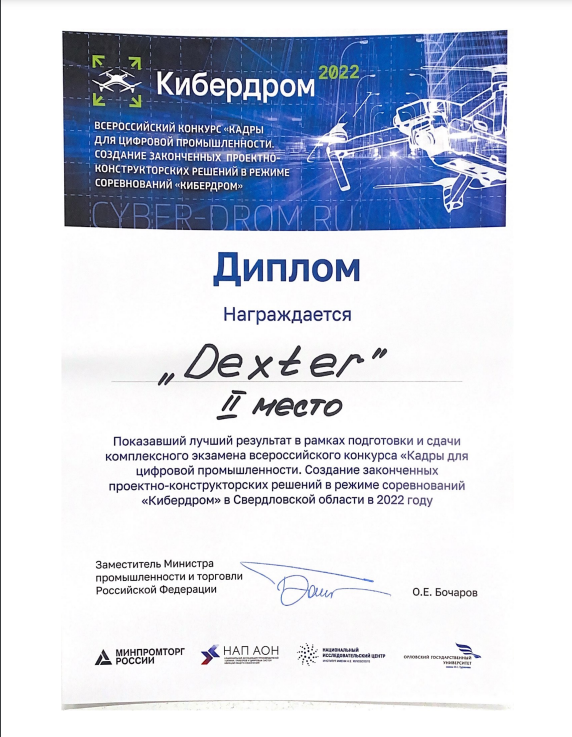 Кибердром 2022
ВСЕРОССИЙСКИЙ КОНКУРС «КАДРЫ
ДЛЯ ЦИФРОВОЙ ПРОМЫШЛЕННОСТИ.
СОЗДАНИЕ ЗАКОНЧЕННЫХ ПРОЕКТНО-
КОНСТРУКТОРСКИХ РЕШЕНИЙ В РЕЖИМЕ
СОРЕВНОВАНИЙ «КИБЕРДРОМ»
CYBER-DROM.RU
Диплом
Награждается
„Dexter”
II место
Показавший лучший результат в рамках подготовки и сдачи
комплексного экзамена всероссийского конкурса «Кадры для
цифровой промышленности. Создание законченных
проектно-конструкторских решений в режиме соревнований
«Кибердром» в Свердловской области в 2022 году
Заместитель Министра
промышленности и торговли
Российской Федерации
О.Е. Бочаров
МИНПРОМТОРГ
РОССИИ
НАП АОН
НАЦИОНАЛЬНЫЙ
ИССЛЕДОВАТЕЛЬСКИЙ ЦЕНТР
ОРЛОВСКИЙ ГОСУДАРСТВЕННЫЙ
УНИВЕРСИТЕТ